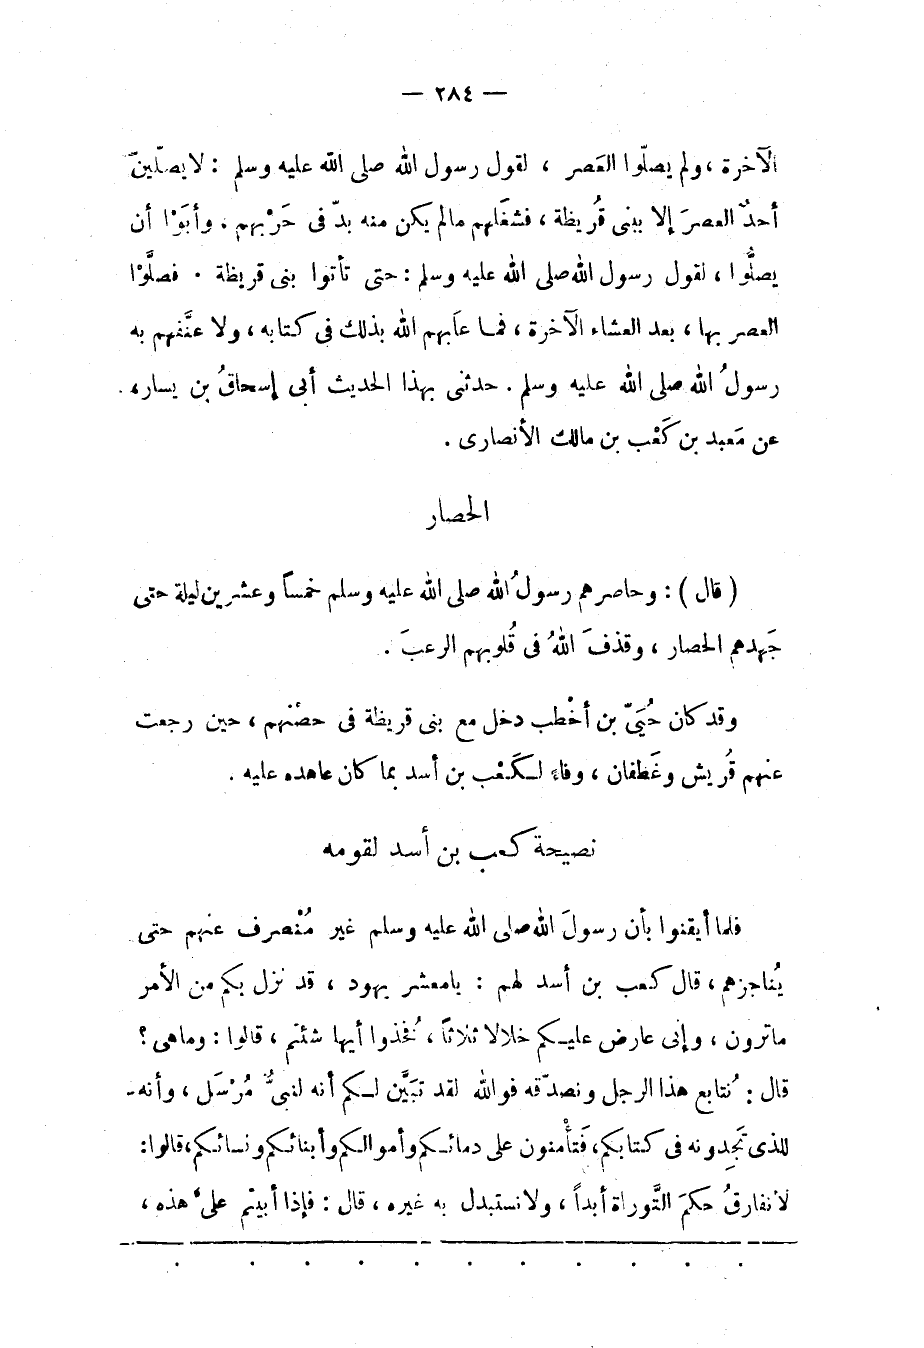 — ٢٨٤ —
الآخرة ، ولم يصلّوا العَصر ، لقول رسول الله صلى الله عليه وسلم : لا يصلّينّ
أحدٌ العصرَ إلا ببنى قُريظة ، فشغَلهم مالم يكن منه بدّ فى حَرْبهم ، وأبَوْا أن
يصلُّوا ، لقول رسول الله صلى الله عليه وسلم : حتى تأتوا بنى قريظة . فصلَّوْا
العصر بها ، بعد العشاء الآخرة ، فما عَابهم الله بذلك فى كتابه ، ولا عنَّفهم به
رسولُ الله صلى الله عليه وسلم . حدثنى بهذا الحديث أبى إسحاقُ بن يسار ،
عن مَعبد بن كَعْب بن مالك الأنصارى .
الحصار
( قال ) : وحاصرهم رسولُ الله صلى الله عليه وسلم خمساً وعشرين ليلة حتى
جَهدهم الحصار ، وقذفَ اللهُ فى قُلوبهم الرعبَ .
وقد كان حُيَىّ بن أخْطب دخل مع بنى قريظة فى حصْنهم ، حين رجعت
عنهم قُريش وغَطفان ، وفاء لكَعْب بن أسد بما كان عاهده عليه .
نصيحة كعب بن أسد لقومه
فلما أيقنوا بأن رسولَ الله صلى الله عليه وسلم غير مُنْصرف عنهم حتى
يُناجزهم ، قال كعب بن أسد لهم : يامعشر يهود ، قد نزل بكم من الأمر
ماترون ، وإنى عارض عليكم خلالا ثلاثاً ، فخُذوا أيها شئتم ، قالوا : وماهى ؟
قال : نُتابع هذا الرجل ونصدّقه فوالله لقد تبَيَّن لكم أنه لنبىٌّ مُرْسَل ، وأنه
للذى تَجِدونه فى كتابكم ، فتأْمنون على دمائكم وأموالكم وأبنائكم ونسائكم ، قالوا :
لا نفارقُ حكمَ التَّوراة أبداً ، ولا نستبدل به غيره ، قال : فإذا أبيتم علىّ هذه ،